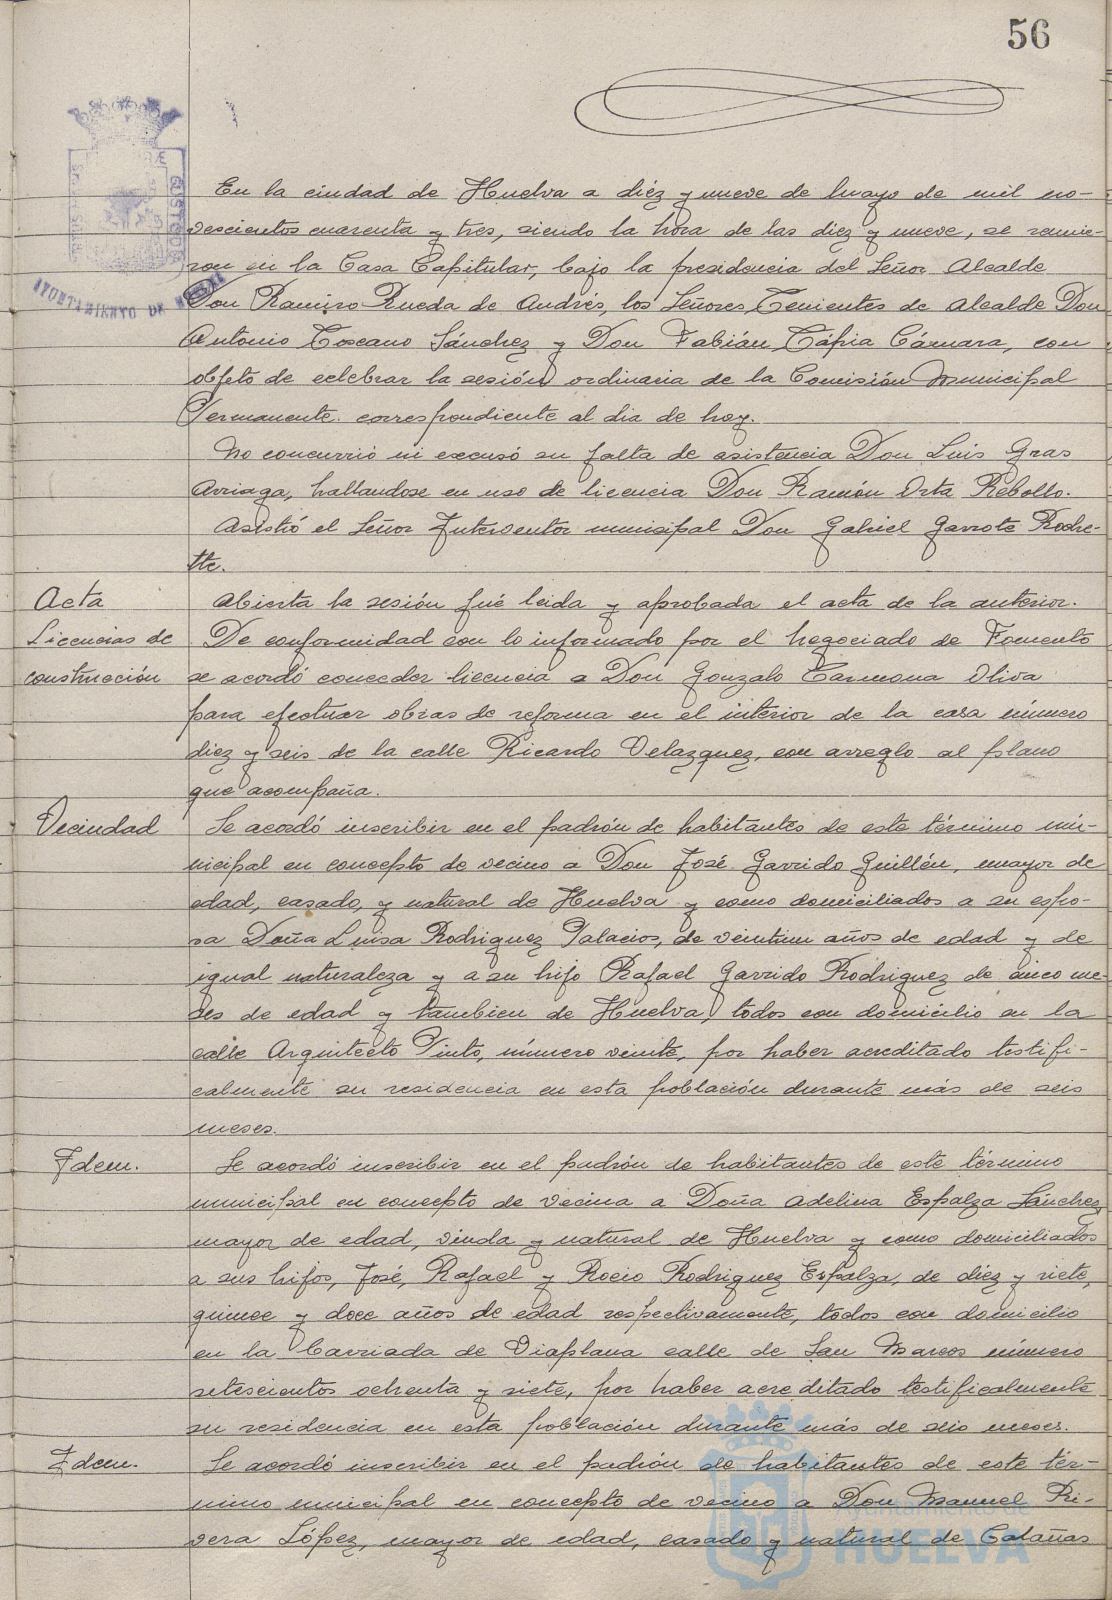 56
En la ciudad de Huelva a diéz y nueve de Mayo de mil no-
vescientos cuarenta y tres, siendo la hora de las diez y nueve, se reunie-
ron en la Casa Capitular, bajo la presidencia del Señor Alcalde
Don Ramiro Rueda de Andrés, los Señores Tenientes de Alcalde Don
Antonio Toscano Sánchez y Don Fabián Tápia Cámara, con
objeto de celebrar la sesión ordinaria de la Comisión Municipal
Permanente correspondiente al dia de hoy.
No concurrió ni excusó su falta de asistencia Don Luis Gras
Arriaga, hallandose en uso de licencia Don Ramón Orta Rebollo.
Asistió el Señor Interventor municipal Don Gabriel Garrote Roche-
tte.
Acta
Abierta la sesión fué leida y aprobada el acta de la anterior.
Licencias de construcción
De conformidad con lo informado por el Negociado de Fomento
se acordó conceder licencia a Don Gonzalo Carmona Oliva
para efectuar obras de reforma en el interior de la casa número
diez y seis de la calle Ricardo Velazquez, con arreglo al plano
que acompaña.
Vecindad
Se acordó inscribir en el padrón de habitantes de este término mu-
nicipal en concepto de vecino a Don José Garrido Guillén, mayor de
edad, casado, y natural de Huelva y como domiciliados a su espo-
sa Doña Luisa Rodriguez Palacios, de veintiun años de edad y de
igual naturaleza y a su hijo Rafael Garrido Rodriguez de cinco me-
ses de edad y tambien de Huelva, todos con domicilio en la
calle Arquitecto Pinto, número veinte, por haber acreditado testifi-
calmente su residencia en esta población durante más de seis
meses.
Idem.
Se acordó inscribir en el padrón de habitantes de este término
municipal en concepto de vecina a Doña Adelina Espalza Sánchez,
mayor de edad, viuda y natural de Huelva y como domiciliados
a sus hijos, José, Rafael y Rocio Rodriguez Espalza, de diéz y siete,
quince y doce años de edad respectivamente, todos con domicilio
en la barriada de Viaplana calle de San Marcos número
setescientos ochenta y siete, por haber acreditado testificalmente
su residencia en esta población durante más de seis meses.
Idem.
Se acordó inscribir en el padrón de habitantes de este tér-
mino municipal en concepto de vecino a Don Manuel Ri-
vera López, mayor de edad, casado y natural de Calañas
AYUNTAMIENTO DE
Ayuntamiento de
HUELVA